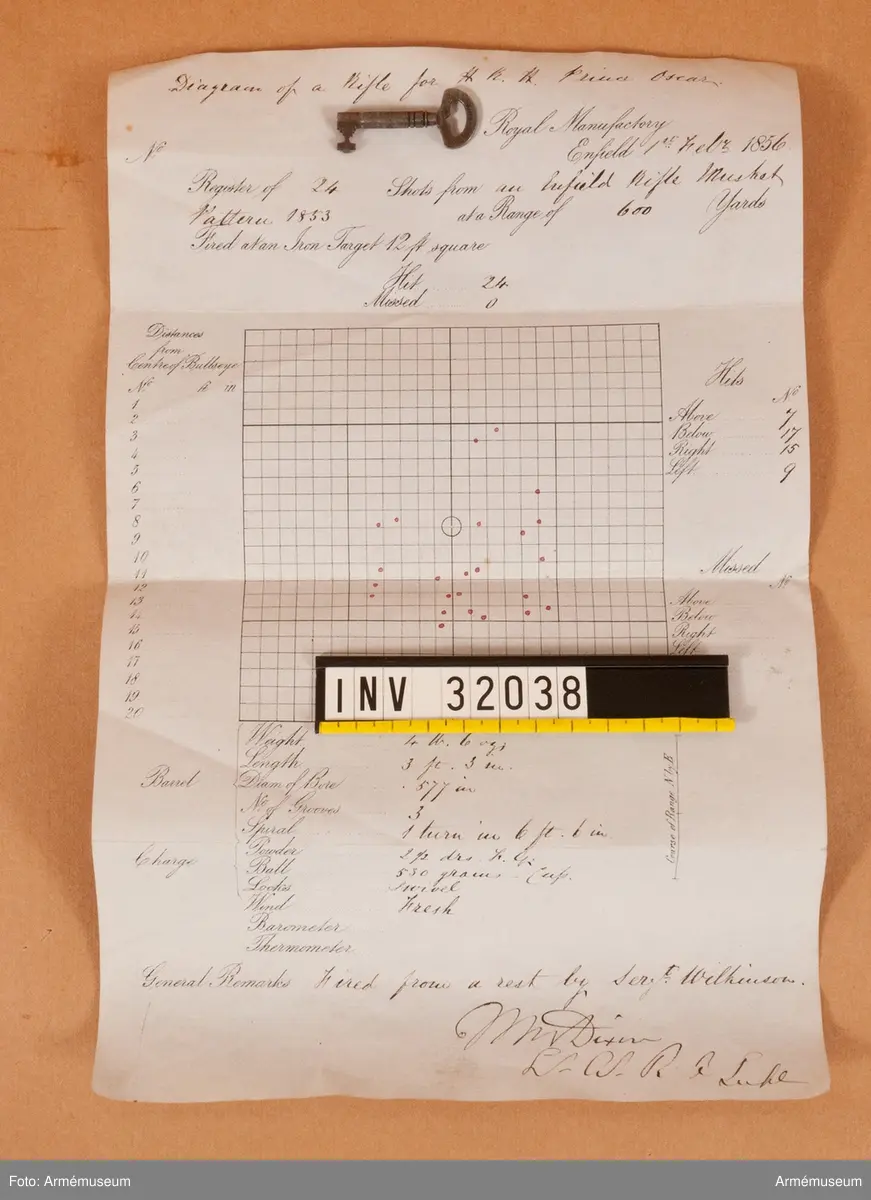 Diagram of a Rifle for H. R. H. Prince Oscar.
Royal Manufactory
Enfield 1st Feby 1856
No
Register of 24 Shots from an Enfield Rifle Musket
Pattern 1853 at a Range of 600 Yards
Fired at an Iron Target 12 ft square
Hit 24
Missed 0
Distances
from
Centre of Bullseye
No ft in
1
2
3
4
5
6
7
8
9
10
11
12
13
14
15
16
17
18
19
20
Hits
No
Above 7
Below 17
Right 15
Left 9
Missed
No
Above
Below
Right
Left
INV 32038
Barrel
Weight 4 lb. 6 ozs
Length 3 ft. 3 in.
Diam of Bore .577 in
No of Grooves 3
Spiral 1 turn in 6 ft. 6 in
Charge
Powder 2½ drs. F. G.
Ball 530 grains Cup.
Locks Swivel
Wind Fresh
Barometer
Thermometer
Course of Range
General Remarks Fired from a rest by Sergt. Wilkinson.
Wm Dixon
Foto: Armémuseum
Armémuseum